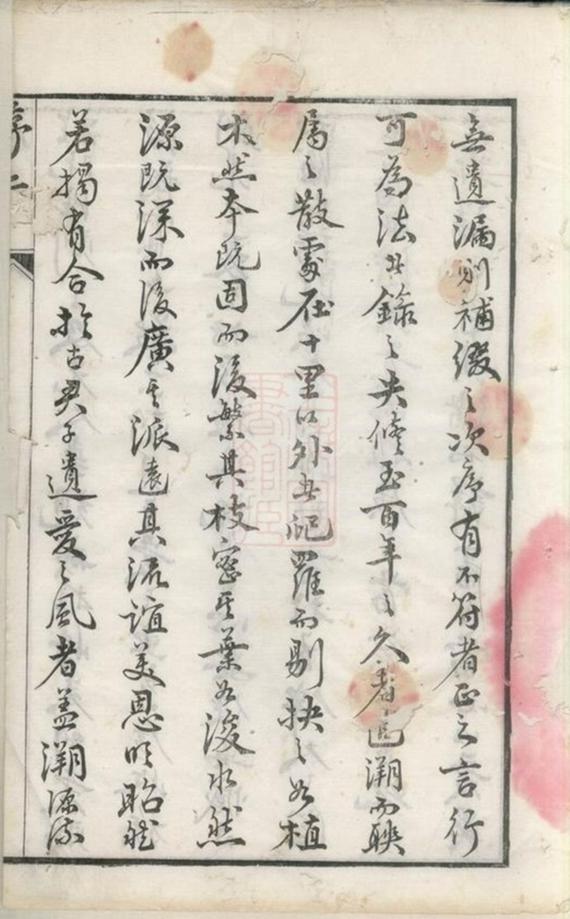 無遺漏則補綴之次序有不符者正之言行
可為法者錄之失修至百年之久者追溯而聯
屬之散處在十里以外者爬羅而剔抉之如植
木然本既固而後繁其枝密其葉如浚水然
源既深而後廣其派遠其流誼美恩明昭然
若揭有合於古君子遺愛之風者蓋溯源流
序 二